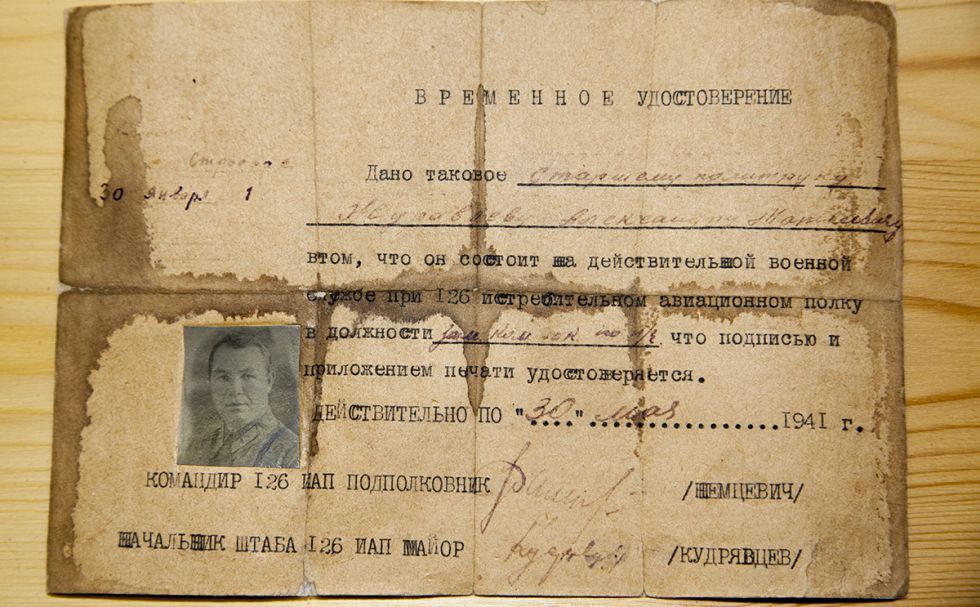 ВРЕМЕННОЕ УДОСТОВЕРЕНИЕ
30 января 1
Дано таковое Старшему политруку
Журавлеву Александру
втом, что он состоит на действительной военной
службе при 126 истребительном авиационном полку
в должности что подписью и
приложением печати удостоверяется.
ДЕЙСТВИТЕЛЬНО ПО "30" мая 1941 г.
КОМАНДИР 126 ИАП ПОДПОЛКОВНИК /НЕМЦЕВИЧ/
НАЧАЛЬНИК ШТАБА 126 ИАП МАЙОР /КУДРЯВЦЕВ/